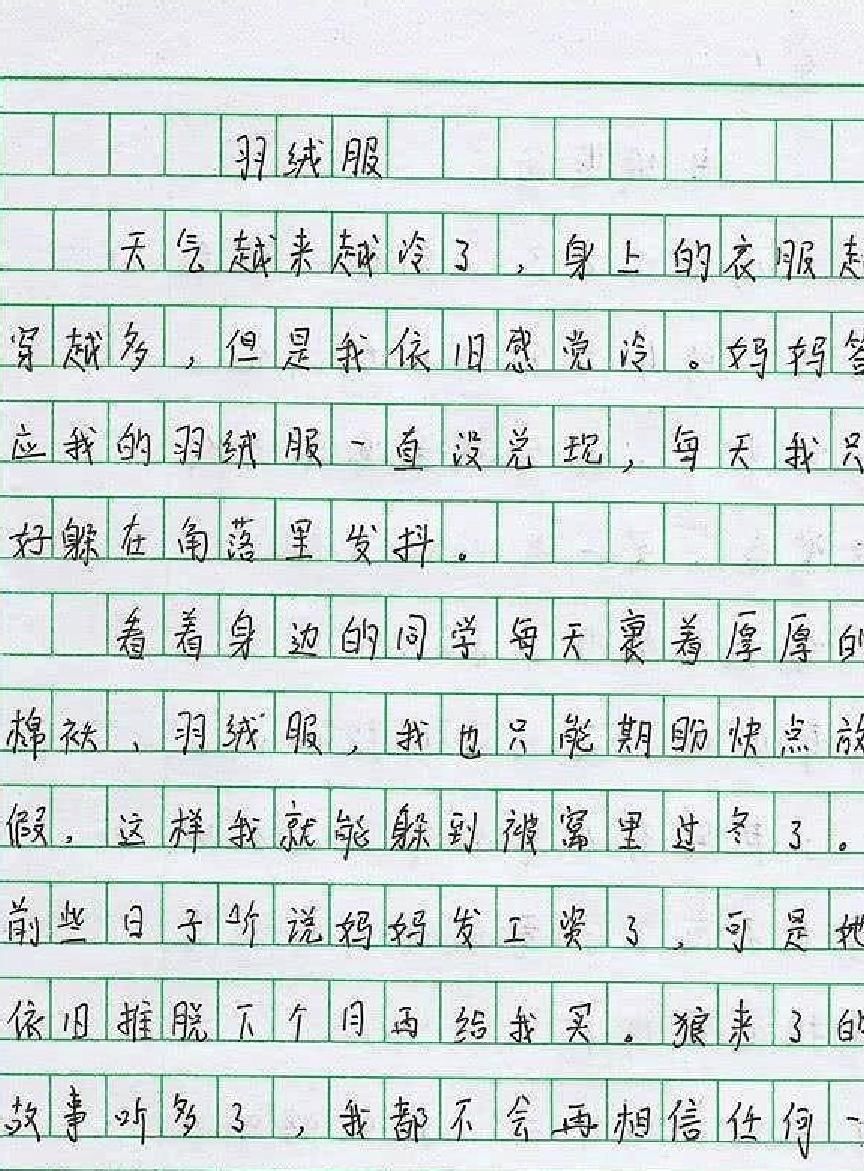 羽绒服
天气越来越冷了，身上的衣服越
穿越多，但是我依旧感觉冷。妈妈答
应我的羽绒服一直没兑现，每天我只
好躲在角落里发抖。
看着身边的同学每天裹着厚厚的
棉袄、羽绒服，我也只能期盼快点放
假，这样我就能躲到被窝里过冬了。
前些日子听说妈妈发工资了，可是她
依旧推脱下个月再给我买。狼来了的
故事听多了，我都不会再相信任何一